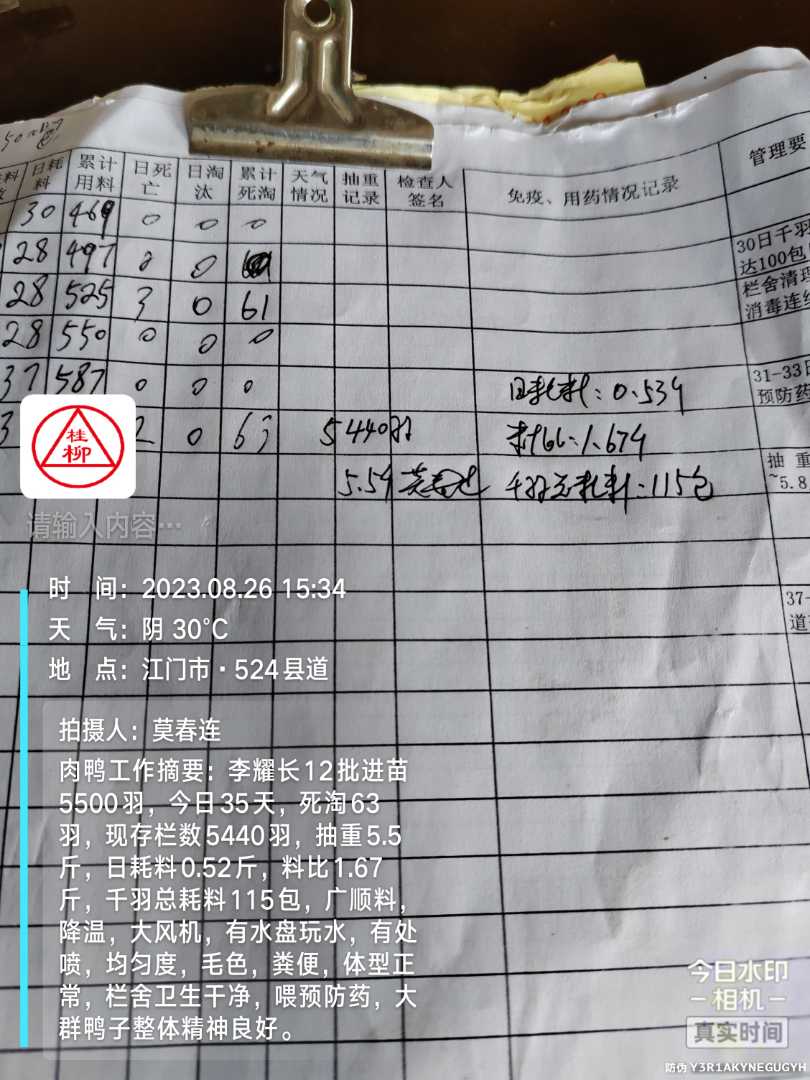 日耗料 累计用料 日死亡 日淘汰 累计死淘 天气情况 抽重记录 检查人签名 免疫、用药情况记录 管理要
30 469 0 0 0
28 497 0 0
30日千羽
达100包
28 525 3 0 61
栏舍清理
消毒连续
28 550 0 0 0
37 587 0 0 0 日耗料:0.534
31-33日
预防药
2 0 63 5440羽 料比:1.674
抽重
~5.8
5.5斤 莫春连 千羽总耗料:115包
37-
道
桂柳
请输入内容…
时 间:2023.08.26 15:34
天 气:阴 30℃
地 点:江门市·524县道
拍摄人:莫春连
肉鸭工作摘要:李耀长12批进苗
5500羽,今日35天,死淘63
羽,现存栏数5440羽,抽重5.5
斤,日耗料0.52斤,料比1.67
斤,千羽总耗料115包,广顺料,
降温,大风机,有水盘玩水,有处
喷,均匀度,毛色,粪便,体型正
常,栏舍卫生干净,喂预防药,大
群鸭子整体精神良好。
今日水印
-相机-
真实时间
防伪 Y3R1AKYNEGUGYH